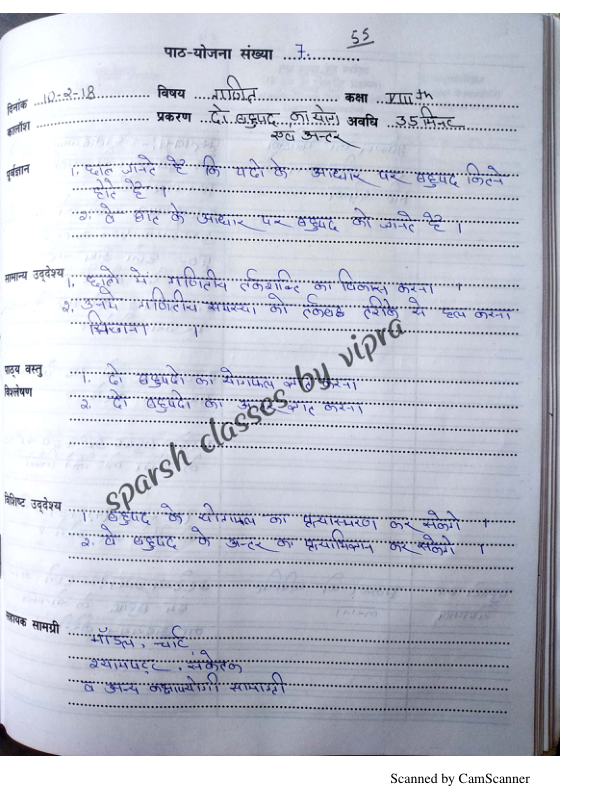 55
पाठ-योजना संख्या ...7.
दिनांक ...10-2-18 विषय ...गणित कक्षा ...VIII th
कालाँश प्रकरण ..दो बहुपद का योग अवधि ..35 मिनट
एवं अन्तर
पूर्वज्ञान 1. छात्र जानते है कि पदो के आधार पर बहुपद कितने
होते है ।
2. वे घात के आधार पर बहुपद को जानते है ।
सामान्य उद्देश्य 1. छात्रो मे गणितीय तर्कशक्ति का विकास करना ।
2. उनमे गणितीय समस्या को तर्कबद्ध तरीके से हल करना
सिखाना ।
पाठ्य वस्तु
विश्लेषण
1. दो बहुपदो का योगफल ज्ञात करना
2. दो बहुपदो का अन्तर ज्ञात करना
sparsh classes by vipra
विशिष्ट उद्देश्य
1. बहुपद के योगफल का प्रत्यास्मरण कर सकेगे ।
2. वे बहुपद के अन्तर का प्रत्याभिज्ञान कर सकेगे ।
सहायक सामग्री
मॉडल, चार्ट,
श्यामपट्ट, संकेतक
व अन्य कक्षापयोगी सामाग्री
Scanned by CamScanner